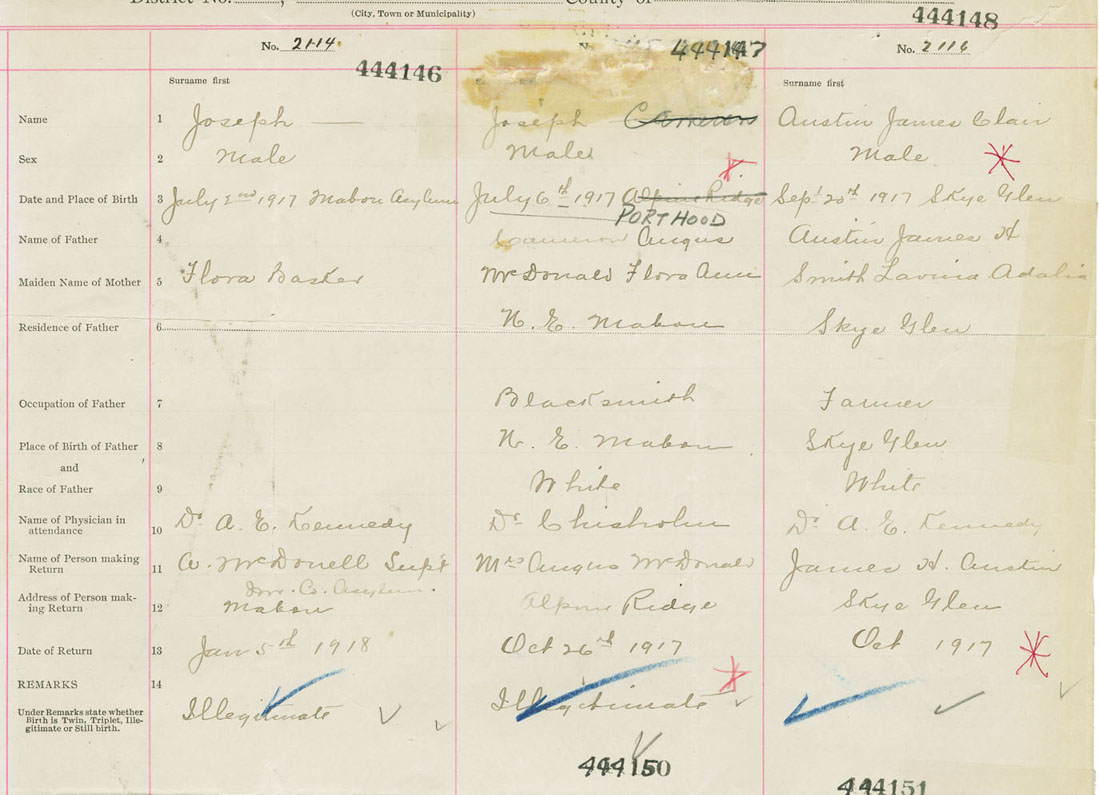 District No. , County of
(City, Town or Municipality)
444148
No. 2114.
444147
No. 2116
444146
Surname first
Surname first
Name 1 Joseph — Joseph Cameron Austin James Clair
Sex 2 Male Male Male
Date and Place of Birth 3 July 2nd 1917 Mabou Asylum July 6th 1917 Alpine Ridge Sept 20th 1917 Skye Glen
PORT HOOD
Name of Father 4 Cameron Angus Austin James H
Maiden Name of Mother 5 Flora Basker McDonald Flora Ann Smith Lavina Adalia
Residence of Father 6 N. E. Mabou Skye Glen
Occupation of Father 7 Blacksmith Farmer
Place of Birth of Father 8 N. E. Mabou Skye Glen
and
Race of Father 9 White White
Name of Physician in
attendance 10 Dr A. E. Kennedy Dr Chisholm Dr A. E. Kennedy
Name of Person making
Return 11 A. McDonell Supt Mrs Angus McDonald James H. Austin
Inv. Co. Asylum.
Address of Person mak-
ing Return 12 Mabou Alpine Ridge Skye Glen
Date of Return 13 Jan 5th 1918 Oct 26th 1917 Oct 1917
REMARKS 14
Under Remarks state whether
Birth is Twin, Triplet, Ille-
gitimate or Still birth.
Illegitimate Illegitimate
444150
444151